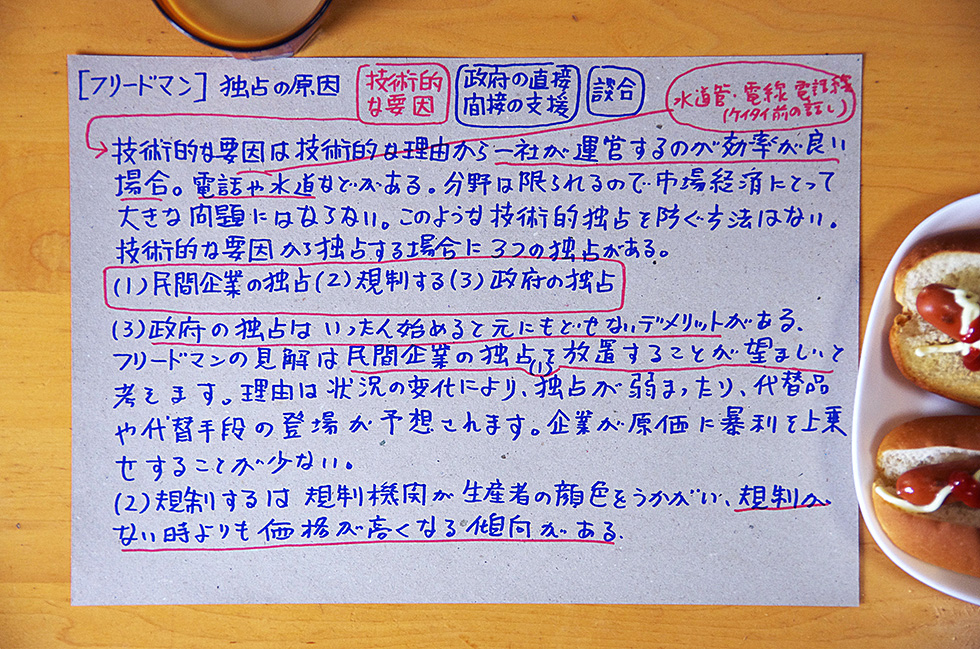 [フリードマン] 独占の原因
技術的
な要因
政府の直接
間接の支援
談合
水道管・電線 電話線
(ケイタイ前の話し)
技術的な要因は技術的な理由から一社が運営するのが効率が良い
場合。電話や水道などがある。分野は限られるので市場経済にとって
大きな問題にはならない。このような技術的独占を防ぐ方法はない.
技術的な要因から独占する場合に3つの独占がある。
(1)民間企業の独占(2)規制する(3)政府の独占
(3)政府の独占はいったん始めると元にもどせないデメリットがある.
フリードマンの見解は民間企業の独占を放置することが望ましいと
(1)
考えます。理由は状況の変化により、独占が弱まったり、代替品
や代替手段の登場が予想されます。企業が原価に暴利を上乗
せすることが少ない。
(2)規制するは規制機関が生産者の顔色をうかがい、規制が
ない時よりも価格が高くなる傾向がある.